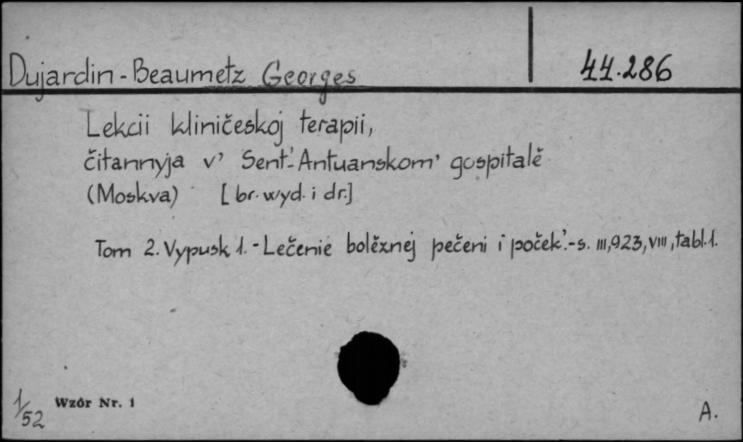 Dujardin-Beaumetz Georges
44.286
Lekcii kliničeskoj terapii,
čitannyja v' Sent'-Antuanskom' gospitalě
(Moskva) [br. wyd. i dr.]
Tom 2. Vypusk 1. - Lečenie bolěznej pečeni i poček'. - s. III, 923, VIII, tabl. 1.
1/52
Wzór Nr. 1
A.